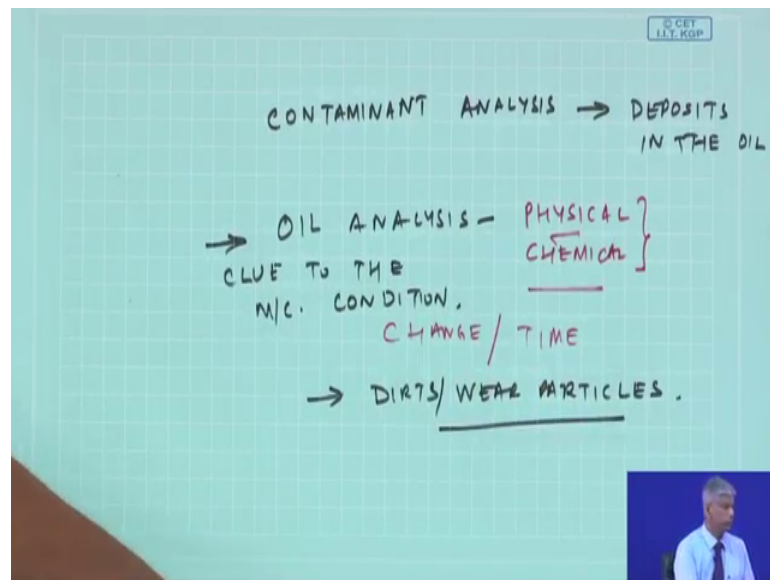 © CET
I.I.T. KGP
CONTAMINANT ANALYSIS → DEPOSITS
IN THE OIL
→ OIL ANALYSIS - PHYSICAL
CHEMICAL
CLUE TO THE
M/C. CONDITION.
CHANGE / TIME
→ DIRTS/WEAR PARTICLES.